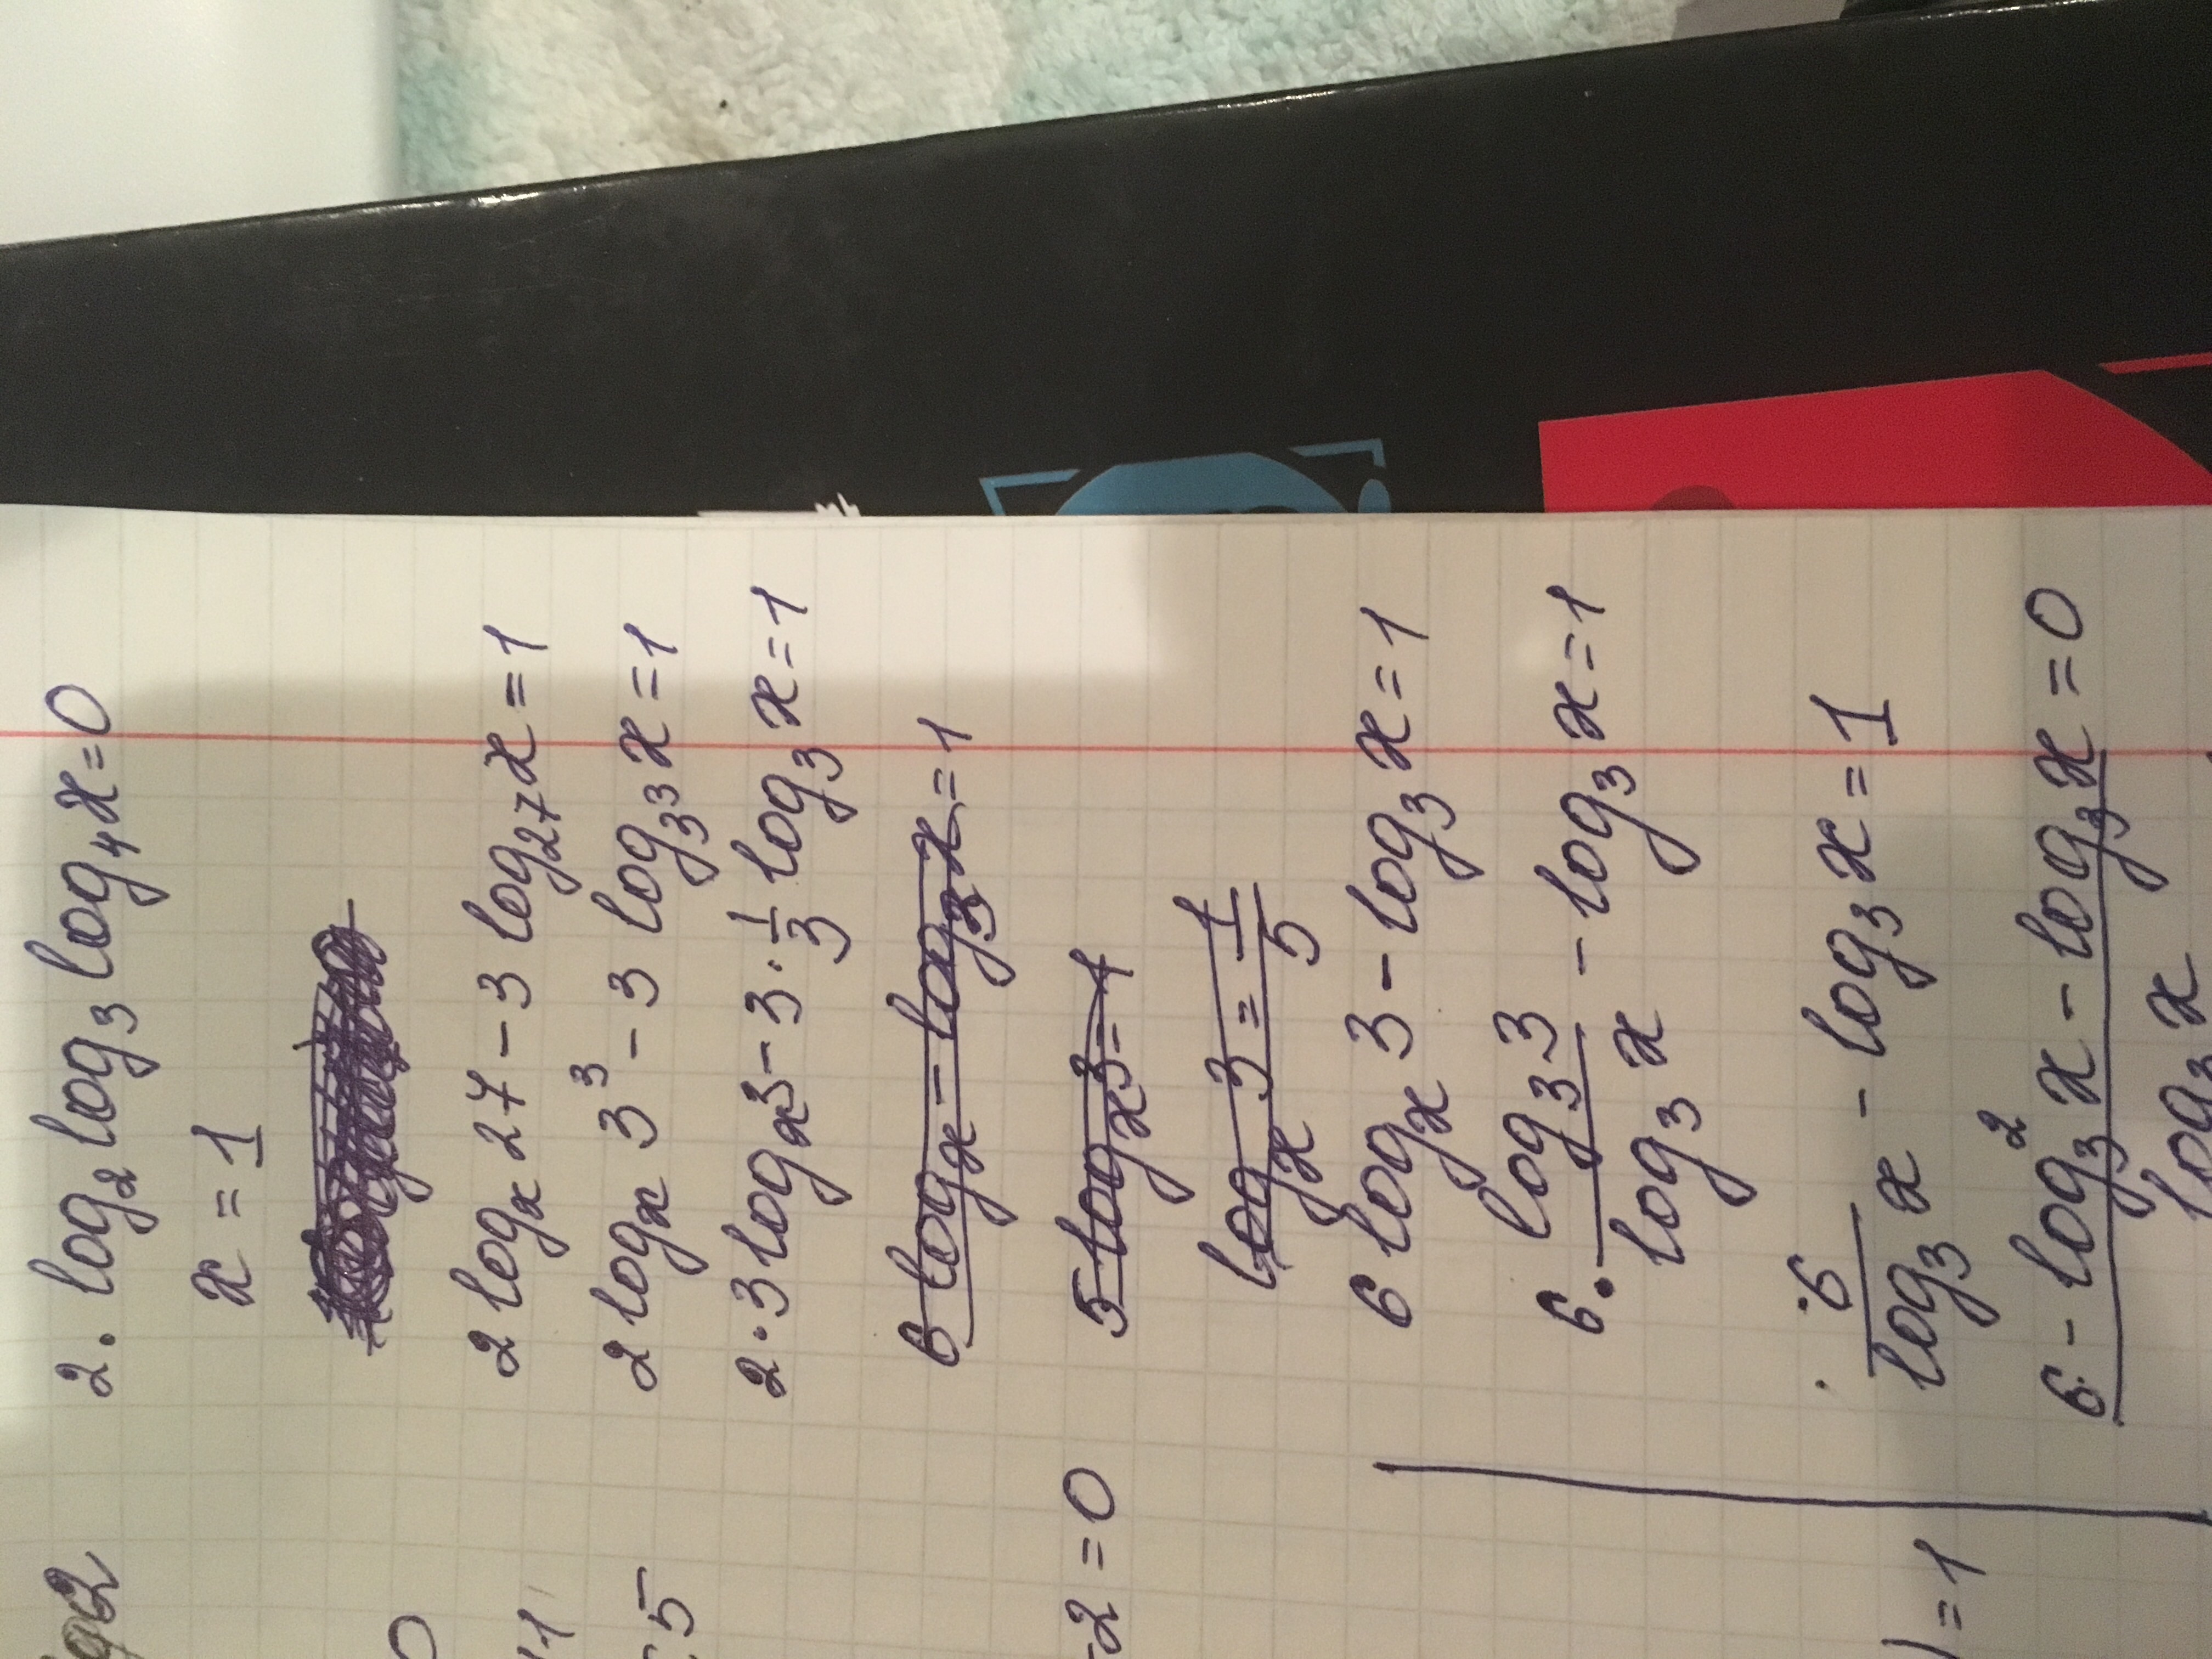 2. log₂ log₃ log₄ x = 0
x = 1
2 logₓ 27 - 3 log₂₇ x = 1
2 logₓ 3³ - 3 log₃³ x = 1
2·3 logₓ 3 - 3·1/3 log₃ x = 1
6 logₓ - log₃ x = 1
5 logₓ 3 = 1
logₓ 3 = 1/5
6 logₓ 3 - log₃ x = 1
6 · log₃ 3 / log₃ x - log₃ x = 1
6 / log₃ x - log₃ x = 1
6 - log₃² x - log₃ x / log₃ x = 0
g2
5
-2 = 0
) = 1